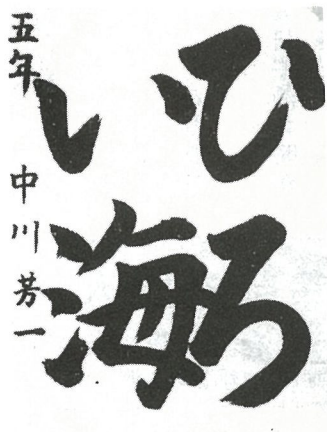 ひろ
い海
五年 中川芳一